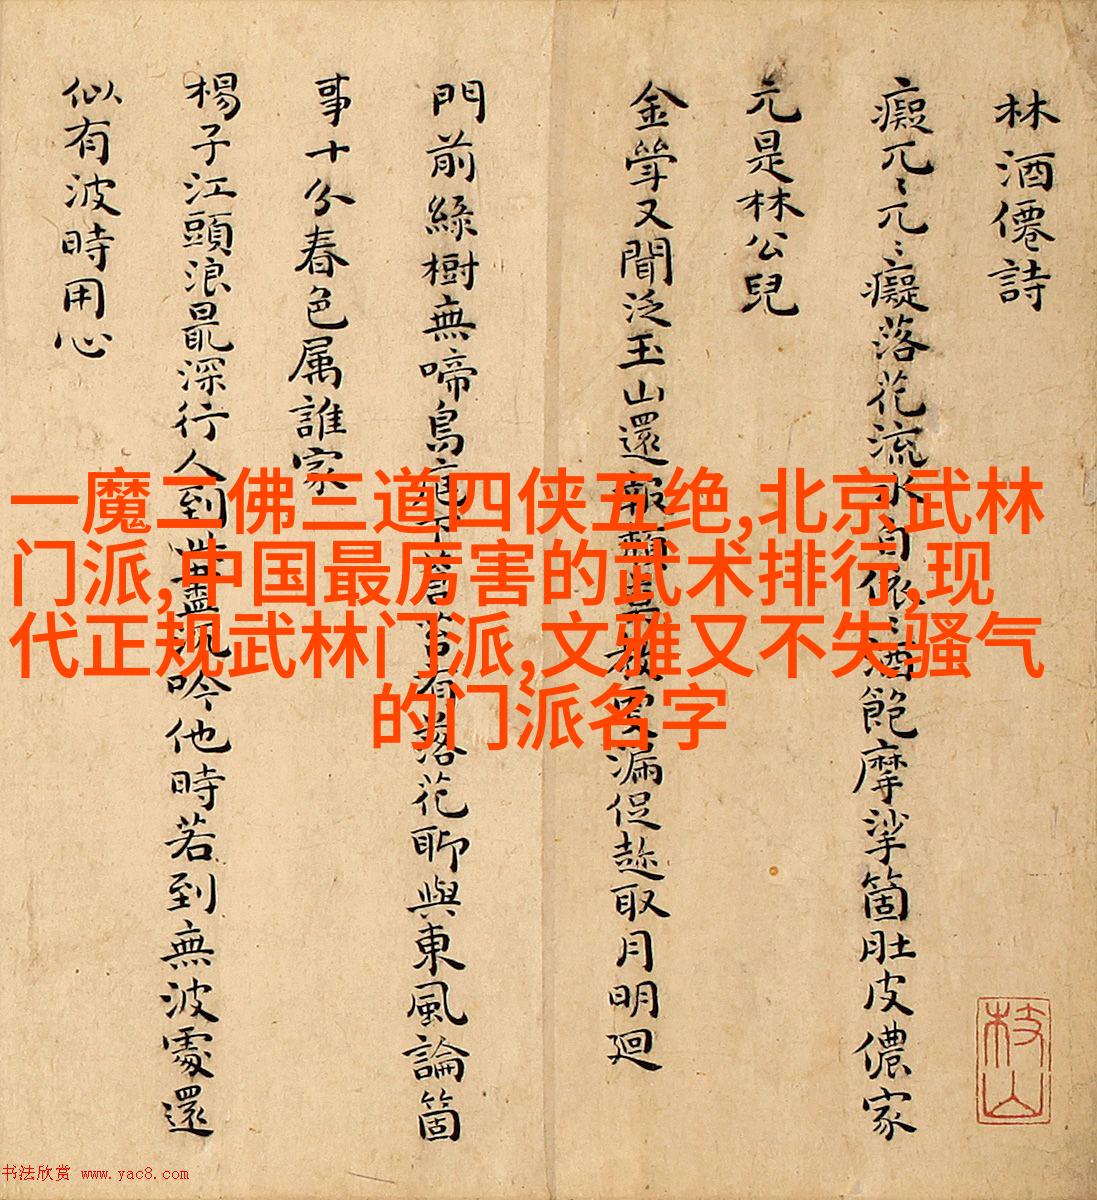 林酒僊詩
癡兀〻兀〻癡落花流水自依〻酒飽摩挲箇肚皮儂家
元是林公兒
金斝又聞泛玉山還報頽莫教更漏促趂取月明廻
門前綠樹無啼鳥庭下蒼苔有落花聊與東風論箇
事十分春色属誰家
楊子江頭浪最深行人到此盡沉吟他時若到無波處還
似有波時用心
枝山
一魔二佛三道四侠五绝,北京武林
门派,中国最厉害的武术排行,现
代正规武林门派,文雅又不失骚气
的门派名字
书法欣赏 www.yac8.com